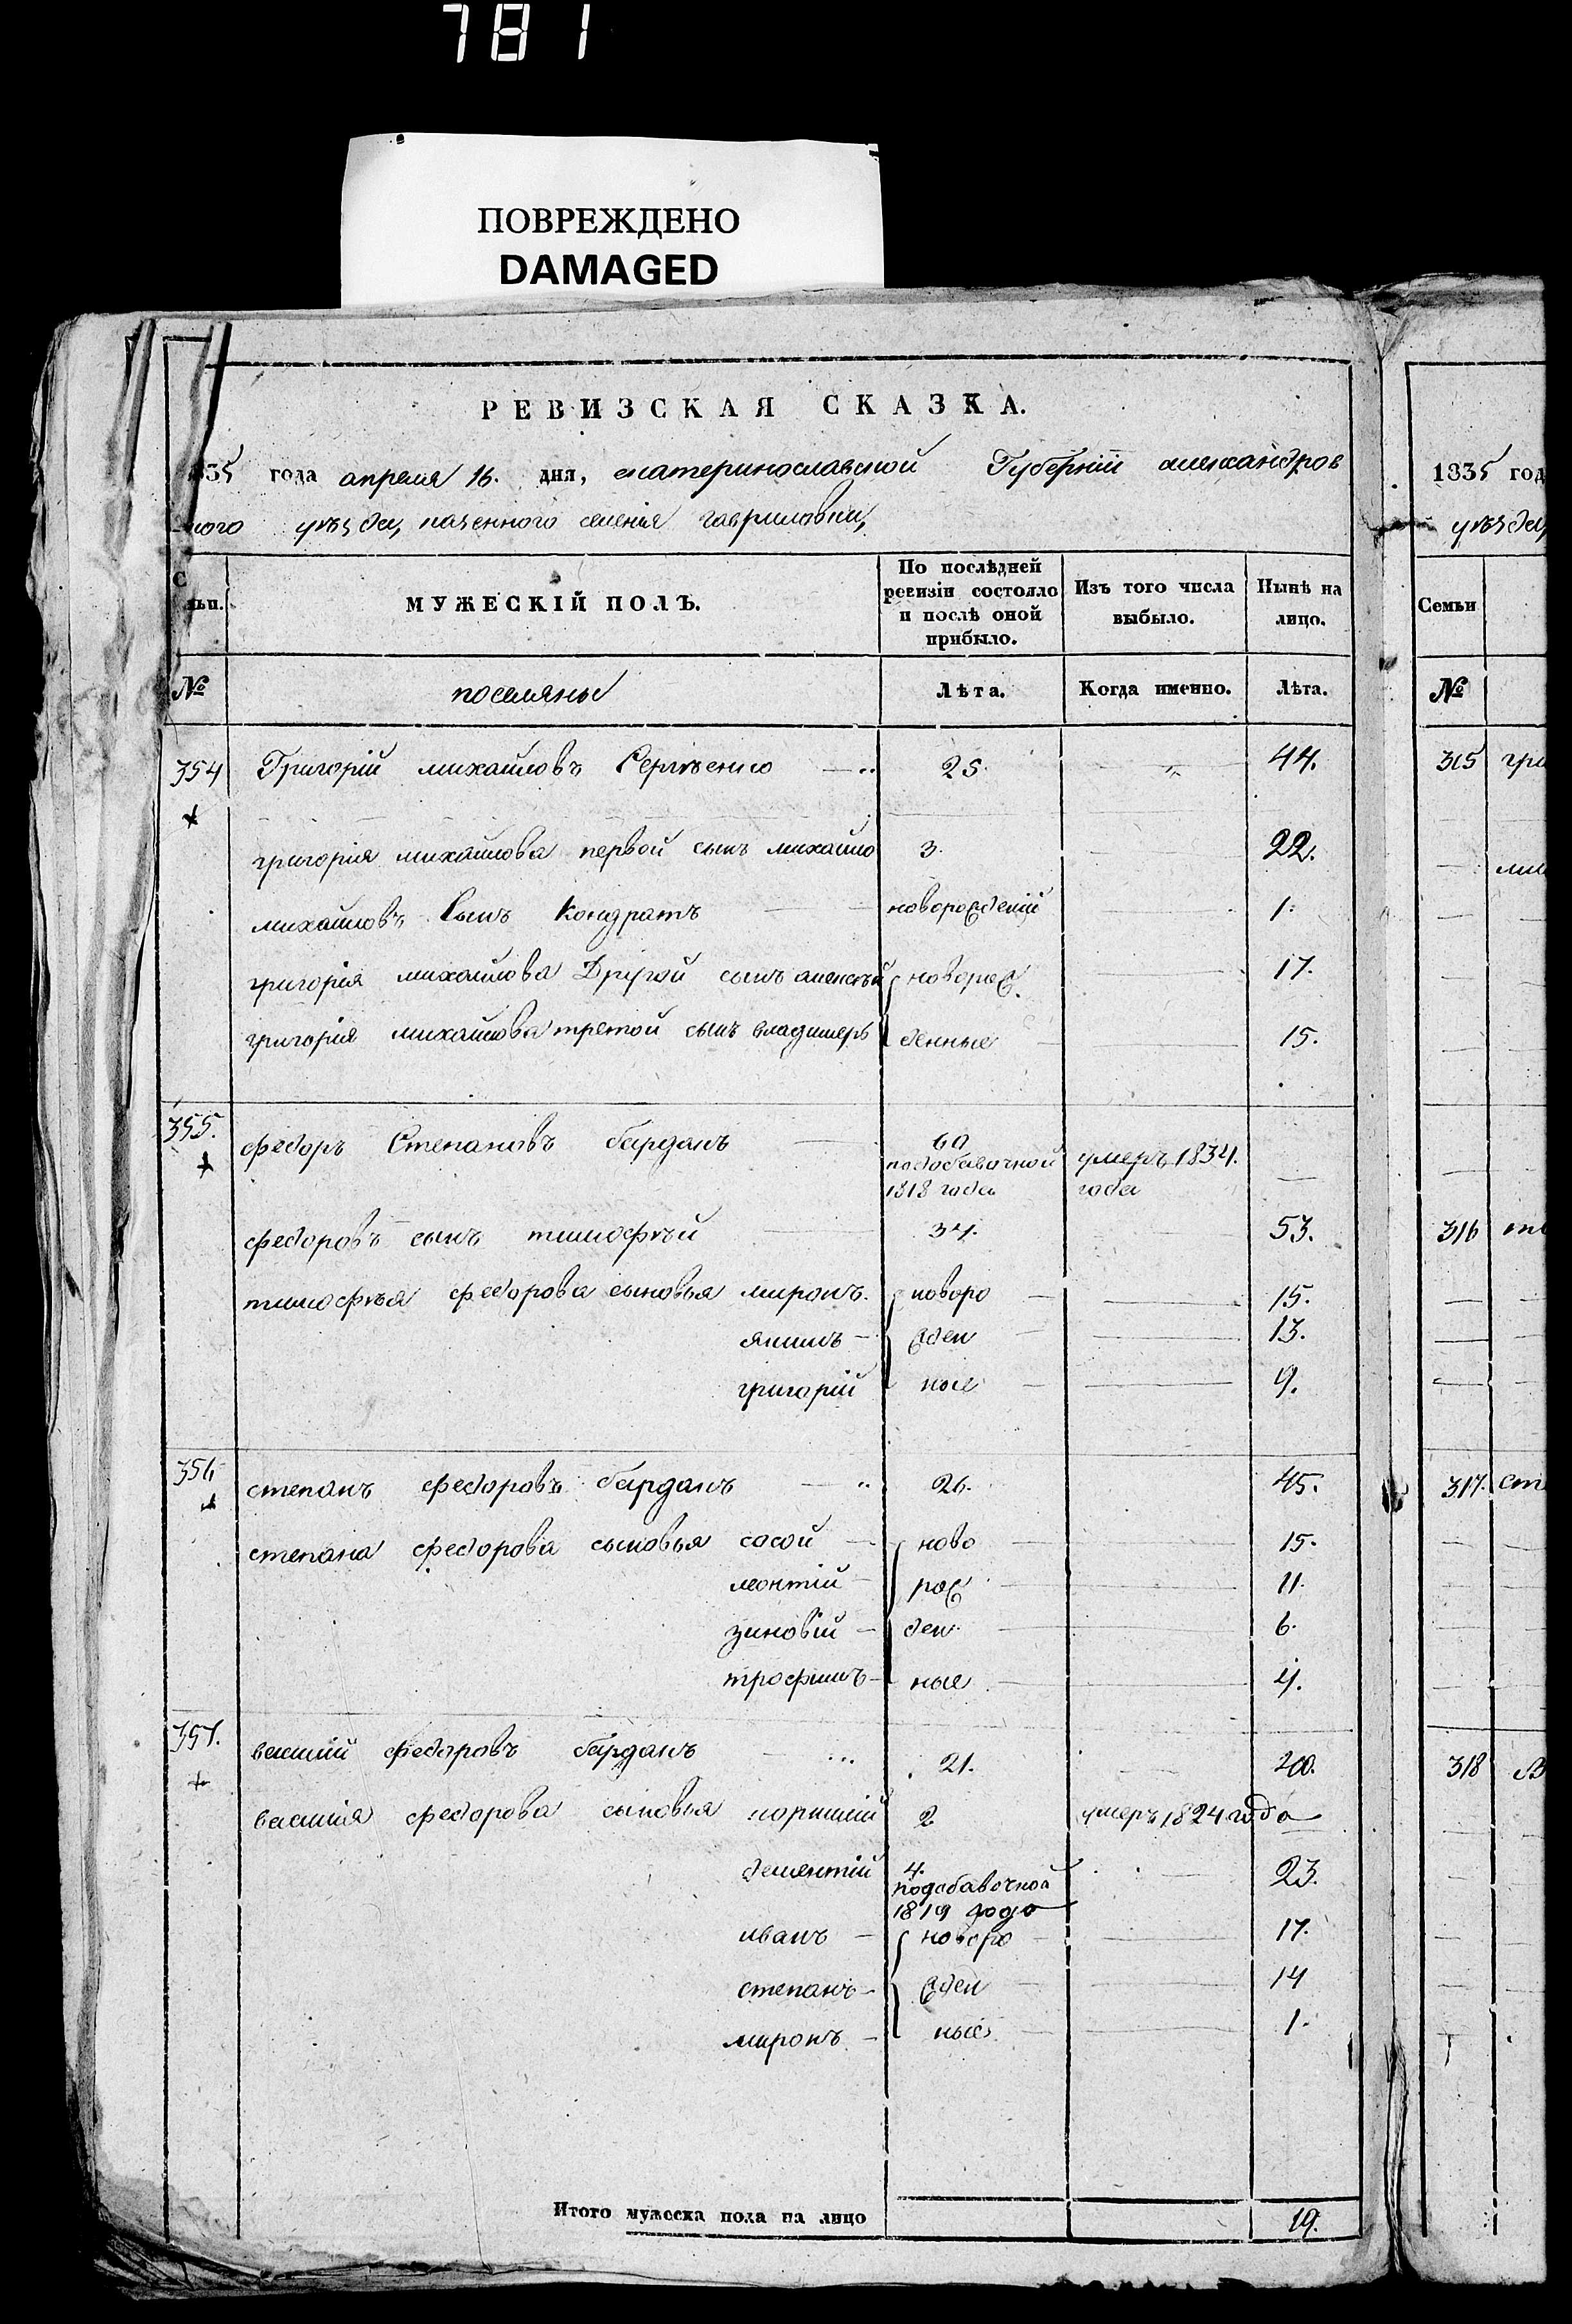 781
ПОВРЕЖДЕНО
DAMAGED
РЕВИЗСКАЯ СКАЗКА.
1835 года апреля 16. дня, екатеринославской Губерніи александров
ного уѣзда, казенного селенія гавриловки,
Семьи. МУЖЕСКІЙ ПОЛЪ. По послѣдней ревизіи состояло и послѣ оной прибыло. Изъ того числа выбыло. Нынѣ на лицо.
№ поселяны Лѣта. Когда именно. Лѣта.
354 Григорій михайловъ Сергѣенко 25. „ 44.
григорія михайлова первой сынъ михайло 3. 22.
михайловъ Сынъ Кондратъ новорожденій 1.
григорія михайлова Другой сынъ алексѣй новорож 17.
григорія михайлова третой сынъ владимеръ денные 15.
355. федоръ Степановъ барданъ 60 подобавочной 1818 года умеръ 1834. года
федоровъ сынъ тимофѣй 34. 53.
тимофѣя федорова сыновья миронъ. новоро 15.
якимъ жден 13.
григорій ные 9.
356 степанъ федоровъ барданъ 26. 45.
степана федорова сыновья сосой ново 15.
леонтій рож 11.
зиновій ден 6.
трофимъ ные 4.
357. василій федоровъ барданъ 21. 40.
василія федорова сыновья корнилій 2 умеръ 1824 года
дементій 4. подобавочной 1819 года 23.
иванъ новоро 17.
степанъ жден 14
миронъ ные 1.
Итого мужеска пола на лицо 19.
1835 год
уѣзда,
Семьи
№
315 гри
мих
316 ти
317. сте
318 в